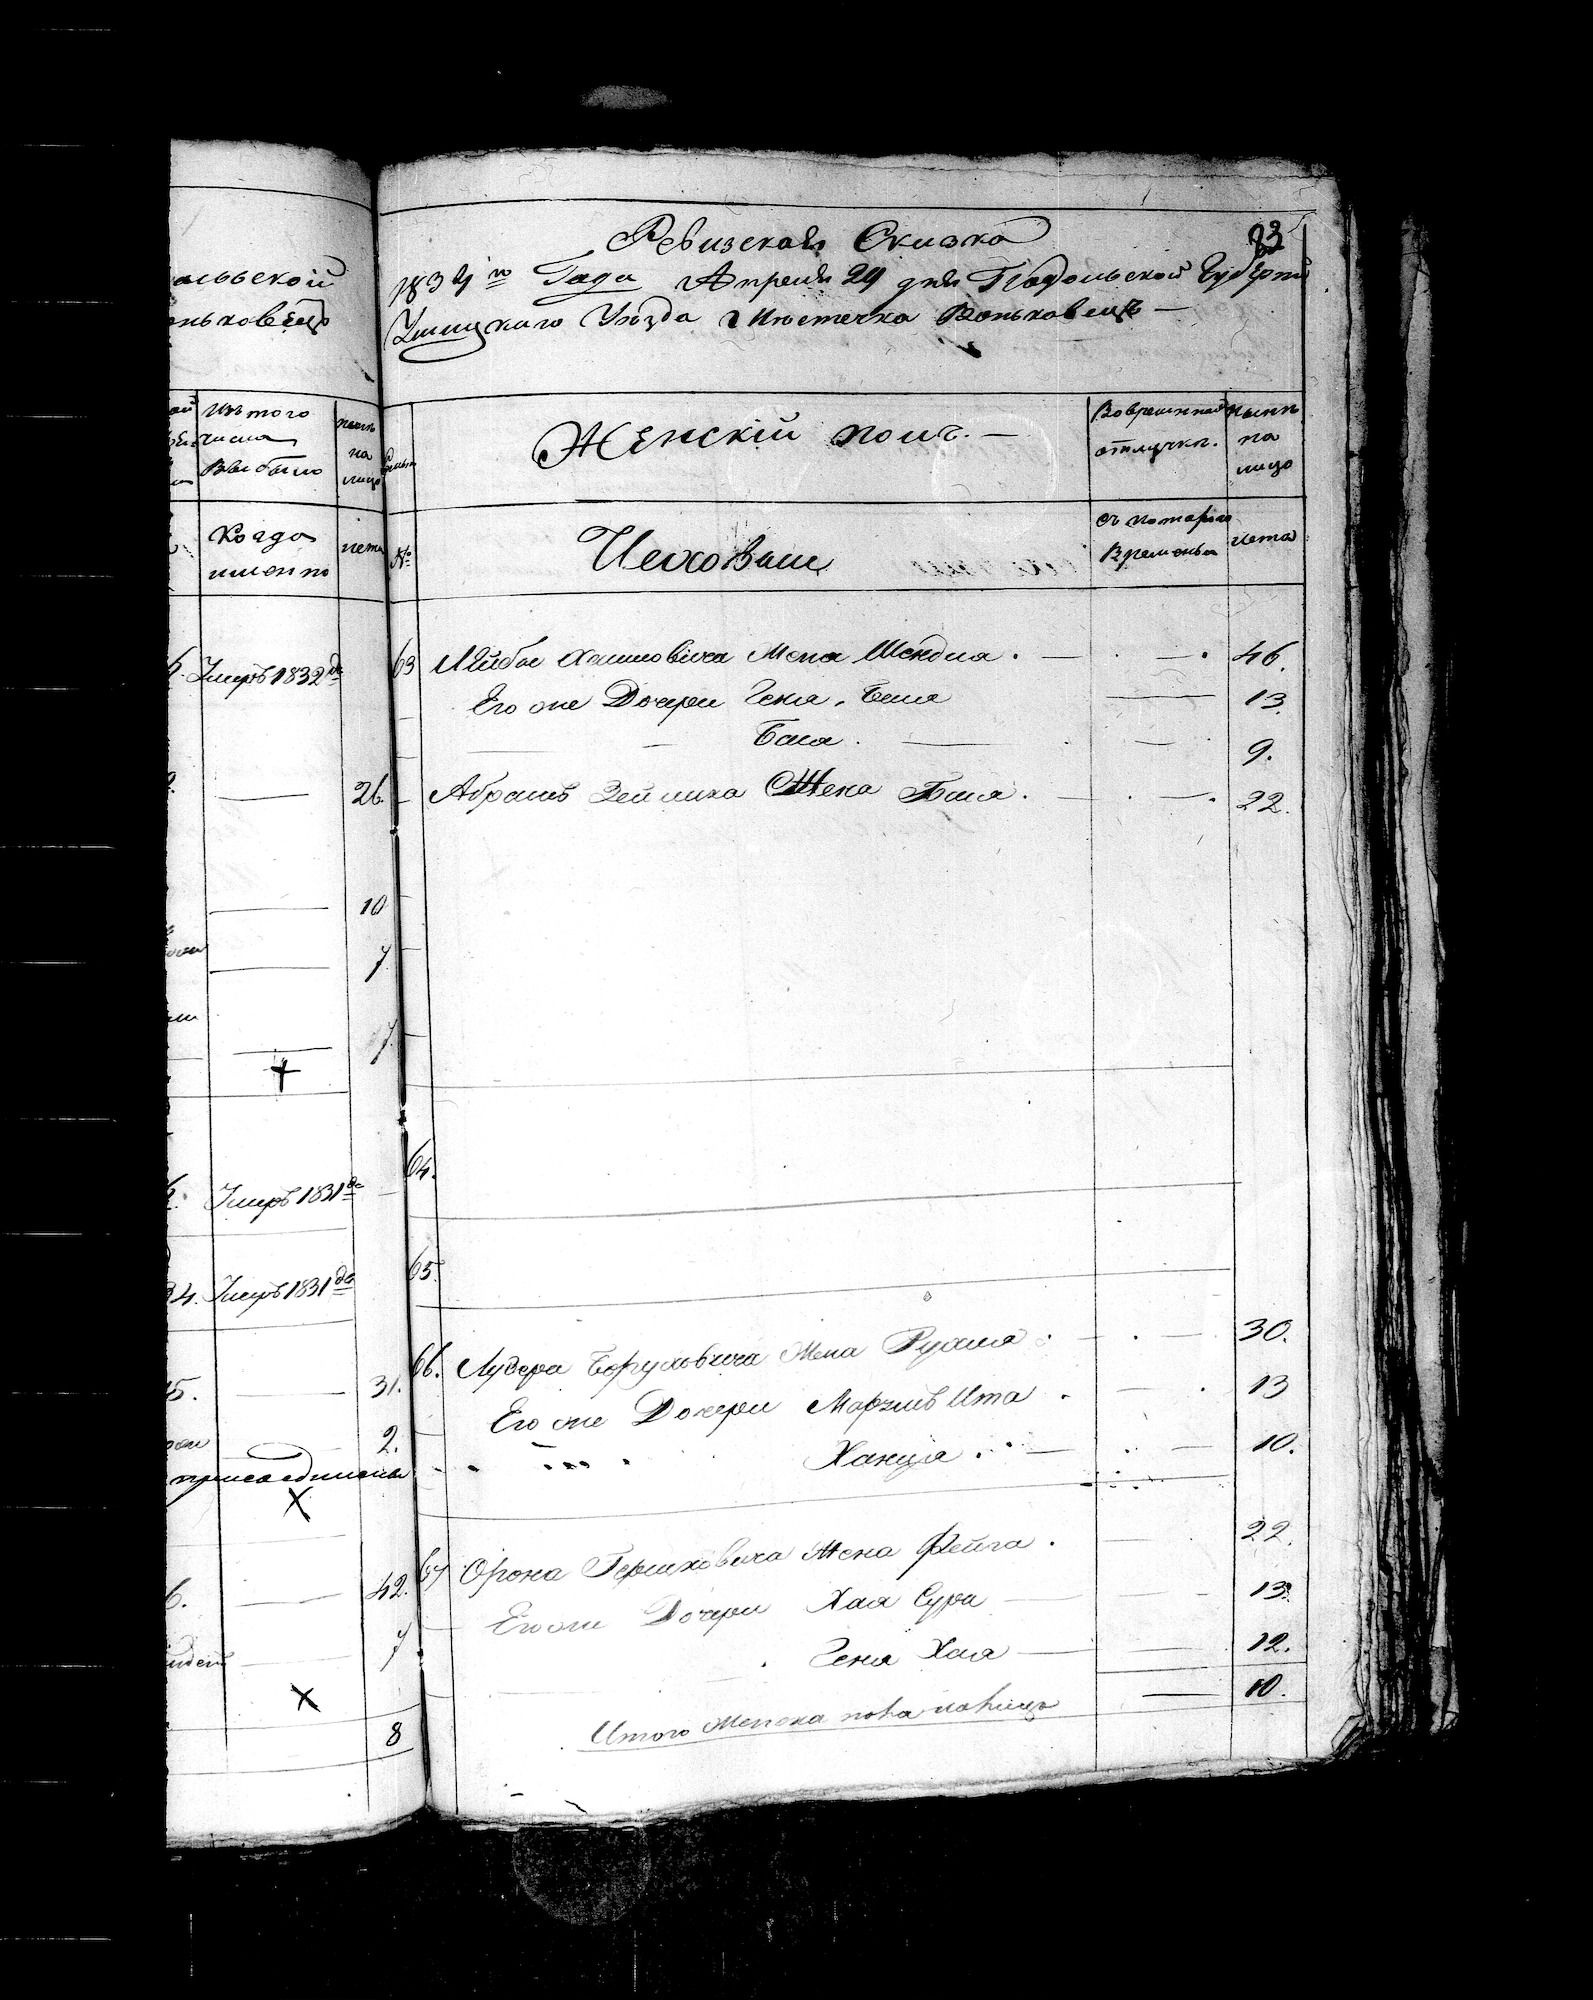 ольской
ньковецъ
изъ того
числа
выбыло
нынѣ
на
лицо
когда
именно
лета
Умеръ 1832 го
26.
10
7
7.
+
Умеръ 1831 го
34. Умеръ 1831 го
31.
2.
присоединены
X
42.
7
X
8
Ревизская Сказка
23
1834 го Года Апреля 29 дня Подольской Губерніи
Ушицкаго Уезда Местечка Воньковецъ —
Женскій полъ. —
Во временной
отлучке.
ныне
на
лицо
№
Чеховые
съ котораго
времены
лета
63 Лейбы Хаимовича Жена Шендля 46.
Его же Дочери Геня, Бейля 13.
Бася 9.
Абрамъ Зейлика Жена Бася 22.
64.
65.
66. Лузера Боруховича Жена Рухля 30.
Его же Дочери Марьямъ Ита 13
Ханця 10.
67 Орона Гершковича Жена Фейга 22.
Его же Дочери Хая Сура 13.
Геня Хая 12.
Итого Женска пола налицо 10.